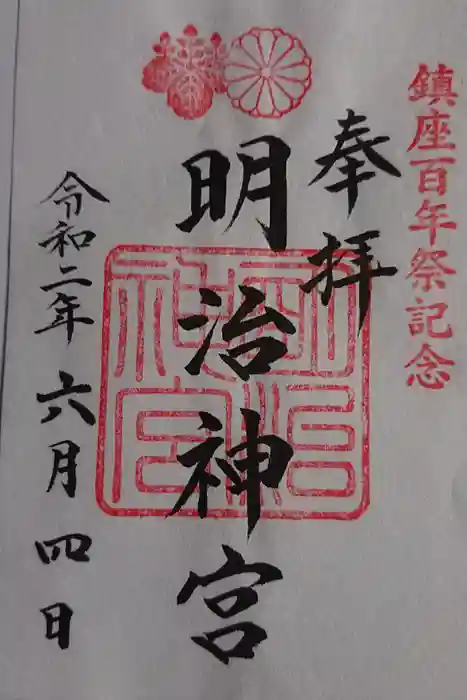 鎮座百年祭記念
奉拝
明治神宮
明治神宮
令和二年六月四日